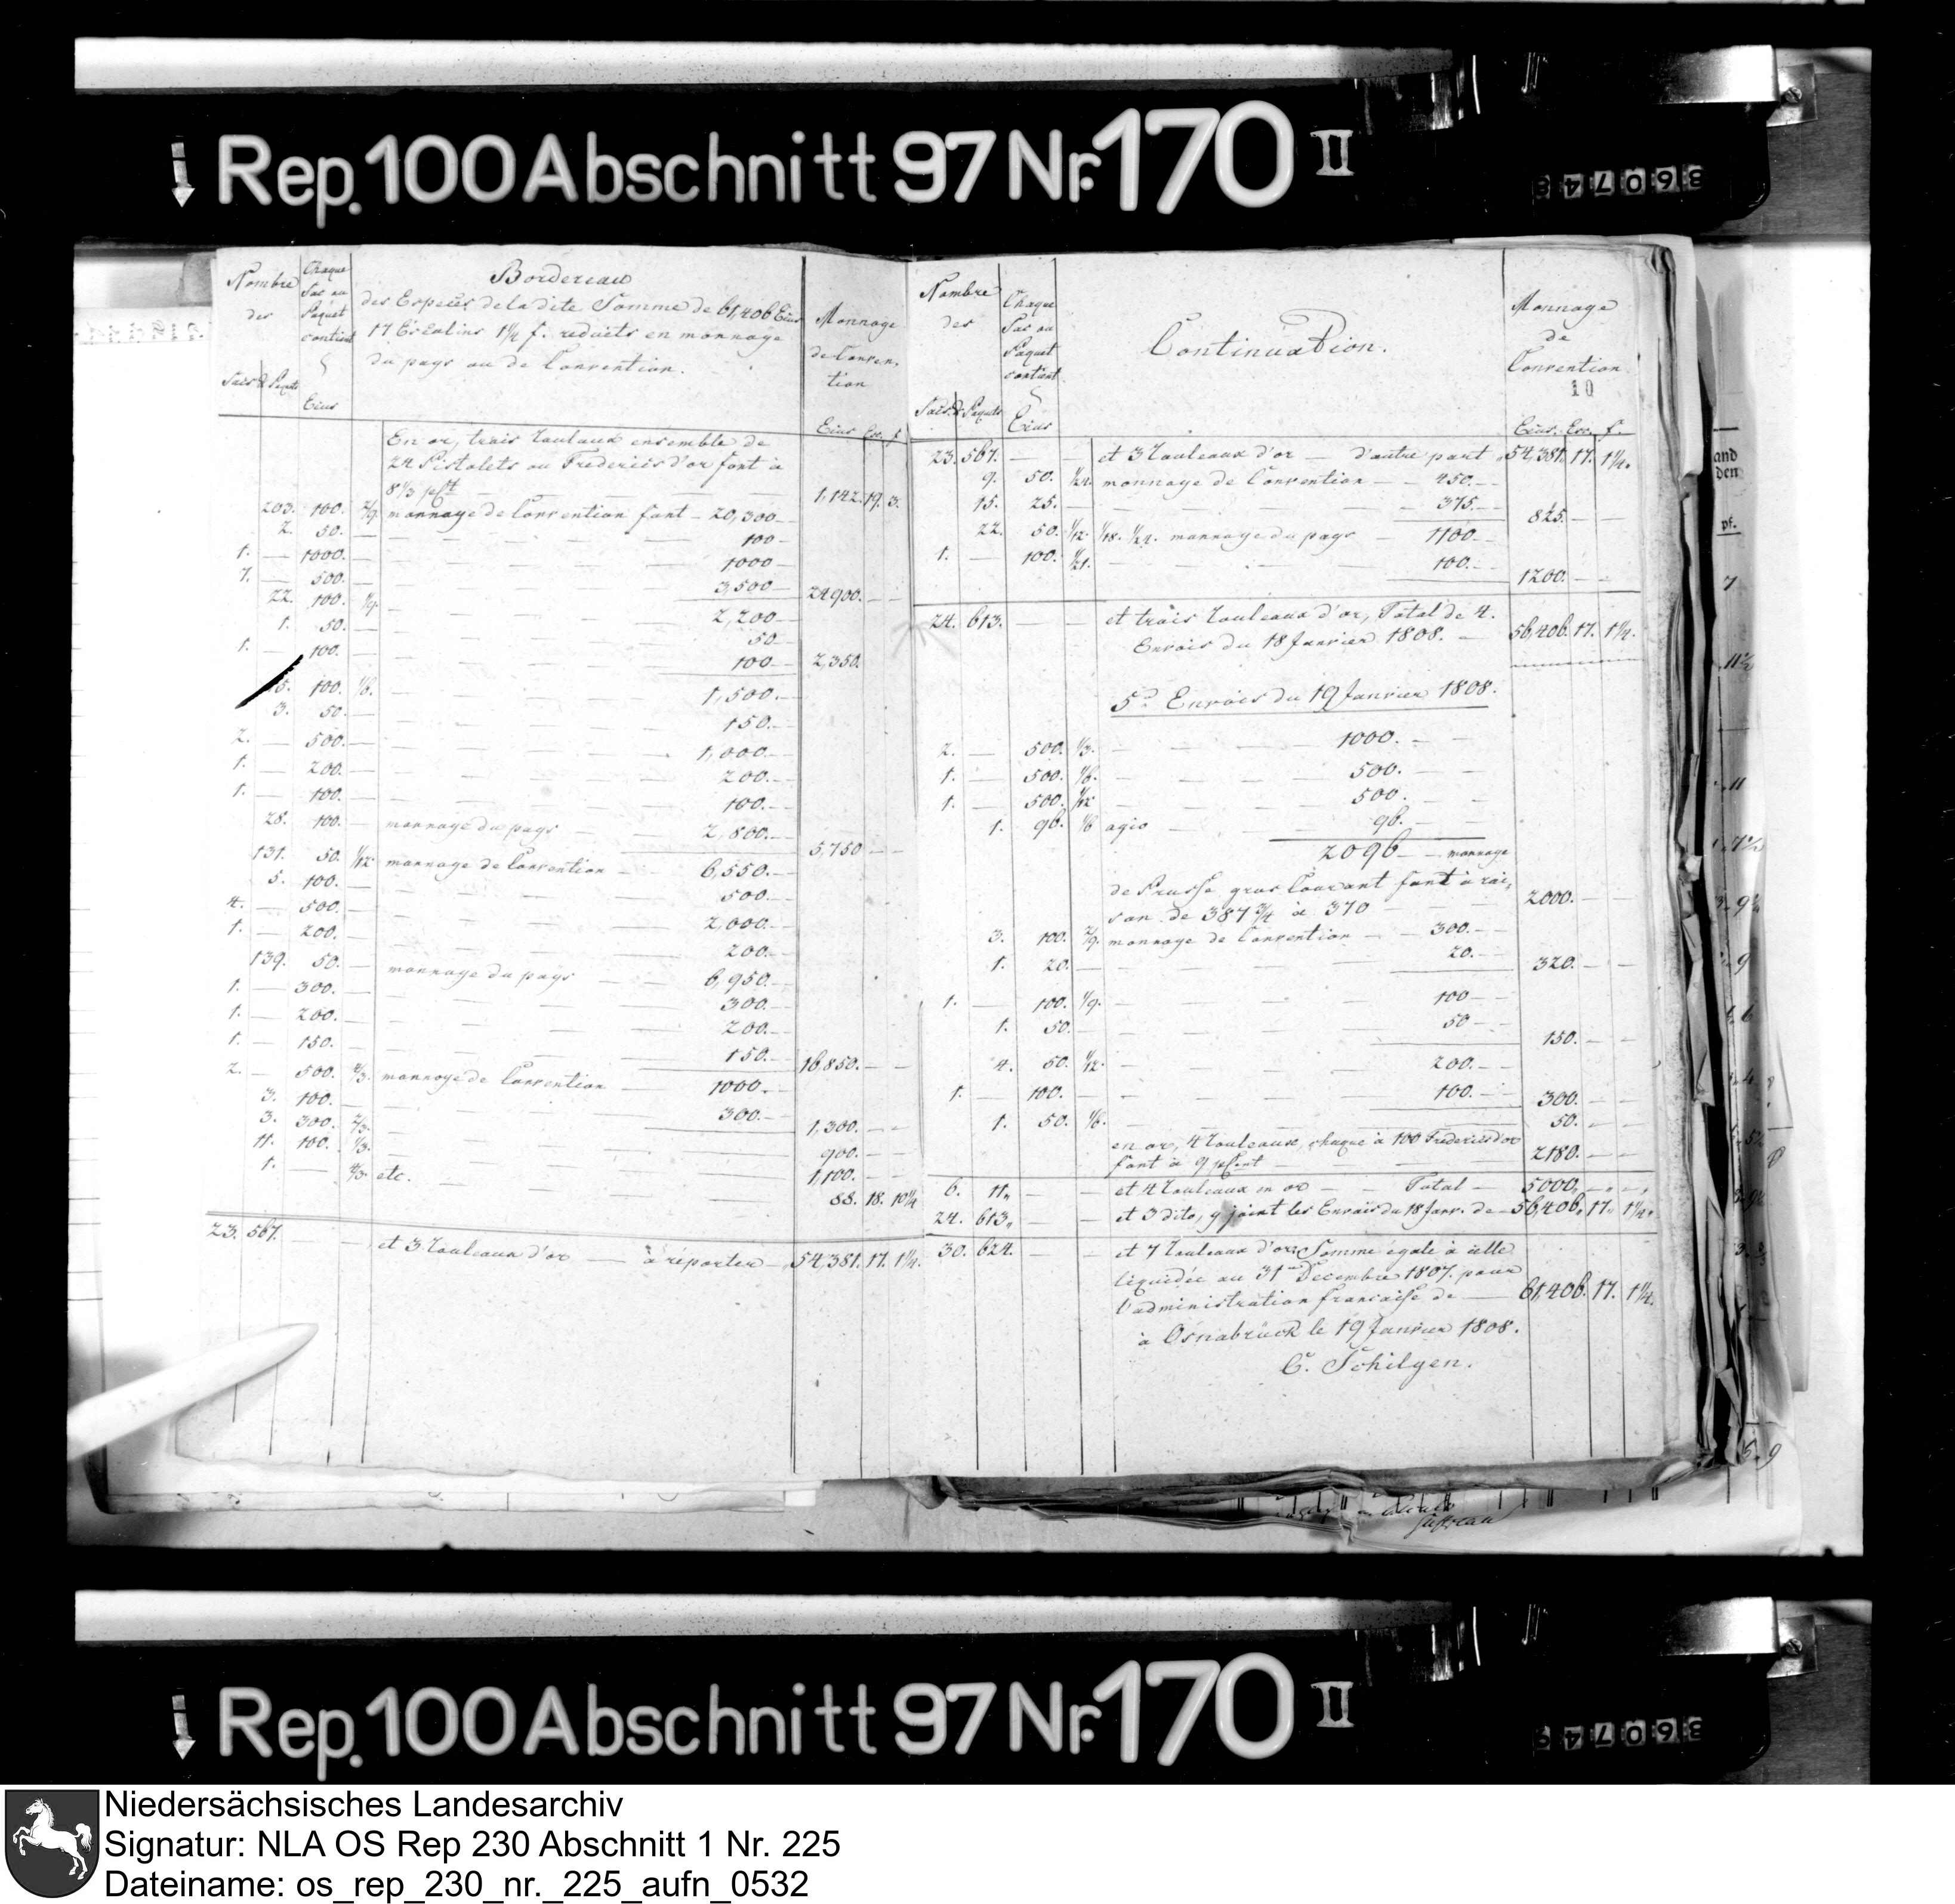 Rep. 100 Abschnitt 97 Nr. 170 II
360748
Nombre des
Sacs & Paquets
Chaque Sac ou Paquet contient
Ecus
Bordereau
des Especes de la dite Somme de 61,406 Ecus
17 Escalins 1¼ f. reduits en monnaye
du pays ou de Convention.
Monnaye de Conven,
tion
Ecus Esc. f.
En or, trois rouleaux ensemble de
24 Pistolets ou Frederics d'or font à
8⅓ pCt — 1,142. 19. 3.
203. 100. 2/9. monnaye de Convention font — 20,300 —
2. 50. — 100 —
1. — 1000. — 1000 —
7. — 500. — 3,500 — 24900. — —
22. 100. 1/9. — 2,200 —
1. 50. — 50 —
1. — 100. — 100 — 2,350.
15. 100. 1/6. — 1,500. —
3. 50. — 150. —
2. — 500. — 1,000. —
1. — 200. — 200. —
1. — 100. — 100. —
28. 100. — monnaye du pays — 2,800. — 5,750 — —
131. 50. 1/12. monnaye de Convention — 6,550. —
5. 100. — 500. —
4. — 500. — 2,000. —
1. — 200. — 200. —
139. 50. — monnaye du pays — 6,950. —
1. — 300. — 300. —
1. — 200. — 200. —
1. — 150. — 150. — 16,850. — —
2. — 500. monnaye de Convention — 1000. —
3. 100. — 300. — 1,300. — —
3. 300. 2/3. — 900. — —
11. 100. 1/3. — 1,100. — —
1. — etc. — 88. 18. 10¼
23. 567. — et 3. rouleaux d'or — à reporter — 54,381. 17. 1¼.
Nombre des
Sacs. & Paquets
Chaque Sac ou Paquet contient
Ecus
Continuation.
Monnaye
de
Convention
10
Ecus. Esc. f.
23. 567. — — et 3 rouleaux d'or — d'autre part 54,381. 17. 1¼.
9. 50. 1/24. monnaye de Convention — 450. —
15. 25. — 375. — 825. — —
22. 50. 1/12. 1/18. 1/24. monnaye du pays — 1100. —
1. — 100. 1/21. — 100. — 1200. — —
24. 613. — — et trois rouleaux d'or, Total de 4.
Envois du 18 Janvier 1808. — 56,406. 17. 1¼.
5e Envois du 19 Janvier 1808.
2. — 500. 1/3. — 1000. —
1. — 500. 1/6. — 500. —
1. — 500. 1/12 — 500. —
1. 96. 1/6 agio — 96. —
2096 — monnaye
de Prusse gros Courant font à rai,
son de 387¾ à 370 — 2000. — —
3. 100. 2/9. monnaye de Convention — 300. —
1. 20. — 20. — 320. — —
1. — 100. 1/9. — 100 —
1. 50. — 50 — 150. — —
4. 50. 1/12. — 200. —
1. — 100. — 100. — 300. — —
1. 50. 1/6. — 50. — —
en or, 4 rouleaux chaque à 100 Frederics d'or
font à 9 pCent — 2180. — —
6. 11. — — et 4 rouleaux en or — Total — 5000. — —
24. 613. — — et 3 dito, y joint les Envois du 18 Janv. de — 56,406. 17. 1¼.
30. 624. — — et 7 rouleaux d'or: Somme egale à celle
liquidée au 31 Decembre 1807. pour
l'administration française de — 61,406. 17. 1¼.
à Osnabrück le 19 Janvier 1808.
C. Schilgen.
and
den
pf.
Rep. 100 Abschnitt 97 Nr. 170 II
Niedersächsisches Landesarchiv
Signatur: NLA OS Rep 230 Abschnitt 1 Nr. 225
Dateiname: os_rep_230_nr._225_aufn_0532